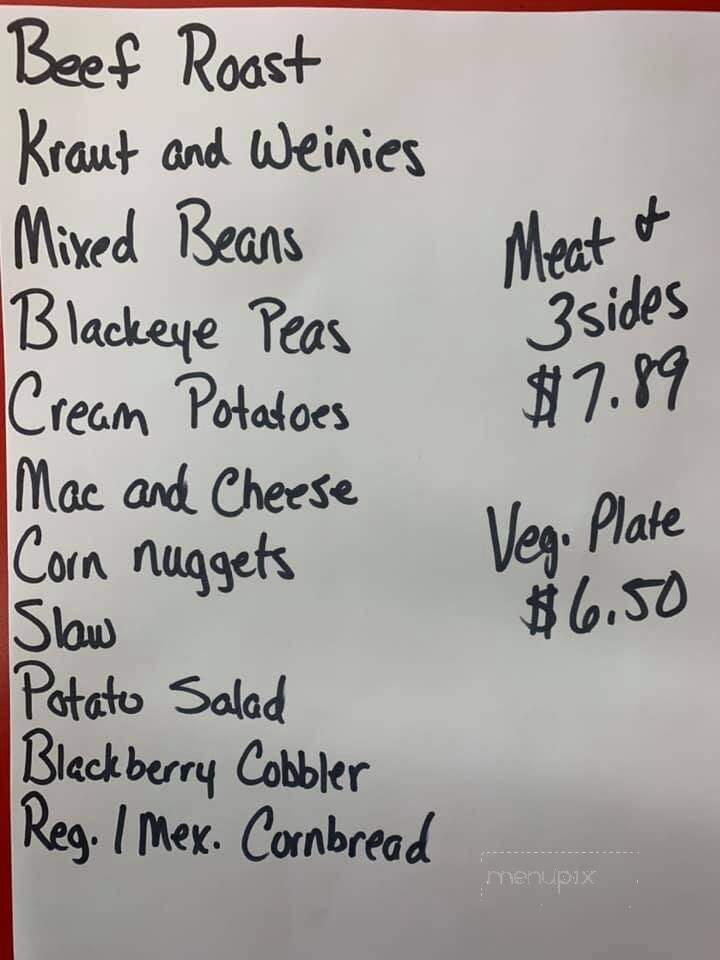 Beef Roast
Kraut and Weinies
Mixed Beans
Blackeye Peas
Cream Potatoes
Mac and Cheese
Corn nuggets
Slaw
Potato Salad
Blackberry Cobbler
Reg. / Mex. Cornbread
Meat &
3 sides
$7.89
Veg. Plate
$6.50
menupix